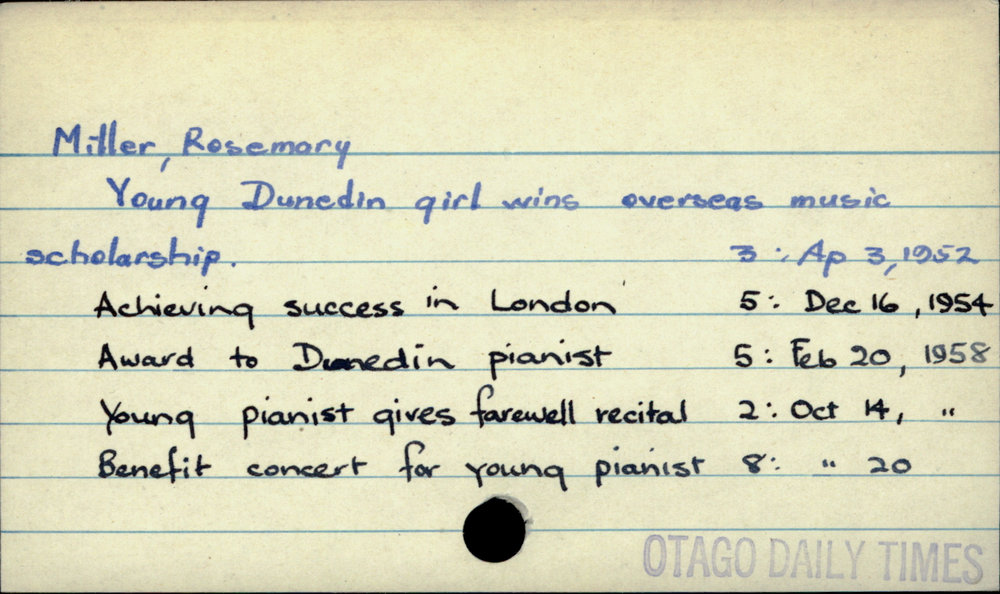 Miller, Rosemary
Young Dunedin girl wins overseas music
scholarship. 3 : Ap 3, 1952
Achieving success in London 5 : Dec 16, 1954
Award to Dunedin pianist 5 : Feb 20, 1958
Young pianist gives farewell recital 2 : Oct 14, "
Benefit concert for young pianist 8 : " 20
OTAGO DAILY TIMES